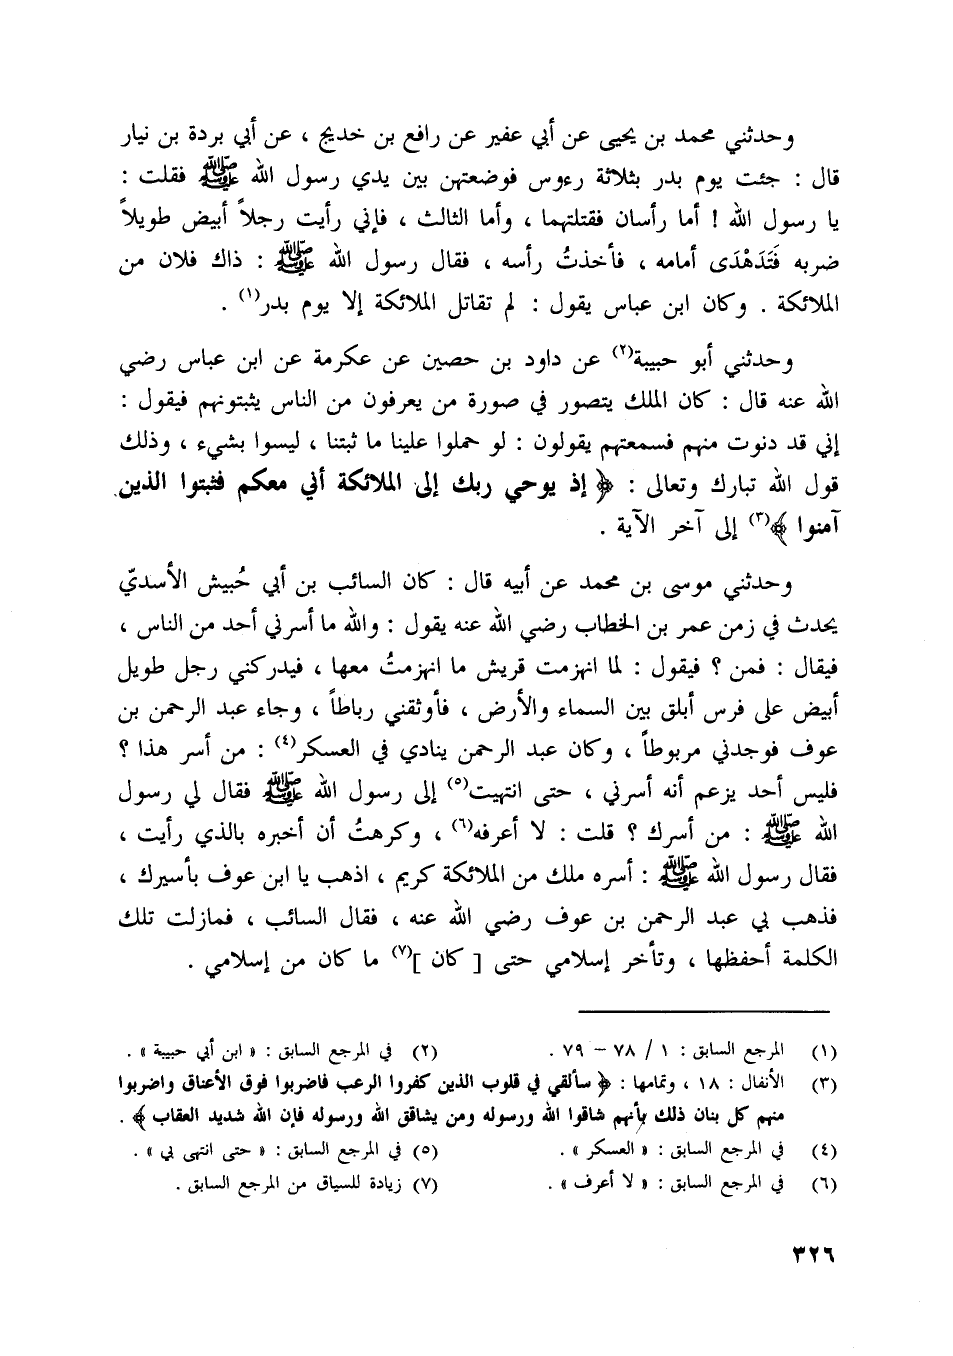 وحدثني محمد بن يحيى عن أبي عفير عن رافع بن خديج ، عن أبي بردة بن نيار
قال : جئت يوم بدر بثلاثة رءوس فوضعتهن بين يدي رسول الله ﷺ فقلت :
يا رسول الله ! أما رأسان فقتلتهما ، وأما الثالث ، فإني رأيت رجلاً أبيض طويلاً
ضربه فَتَدَهْدَى أمامه ، فأخذتُ رأسه ، فقال رسول الله ﷺ : ذاك فلان من
الملائكة . وكان ابن عباس يقول : لم تقاتل الملائكة إلا يوم بدر(١) .
وحدثني أبو حبيبة(٢) عن داود بن حصين عن عكرمة عن ابن عباس رضي
الله عنه قال : كان الملك يتصور في صورة من يعرفون من الناس يثبتونهم فيقول :
إني قد دنوت منهم فسمعتهم يقولون : لو حملوا علينا ما ثبتنا ، ليسوا بشيء ، وذلك
قول الله تبارك وتعالى : ﴿ إذ يوحي ربك إلى الملائكة أني معكم فثبتوا الذين
آمنوا ﴾(٣) إلى آخر الآية .
وحدثني موسى بن محمد عن أبيه قال : كان السائب بن أبي حُبيش الأسديّ
يحدث في زمن عمر بن الخطاب رضي الله عنه يقول : والله ما أسرني أحد من الناس ،
فيقال : فمن ؟ فيقول : لما انهزمت قريش ما انهزمتُ معها ، فيدركني رجل طويل
أبيض على فرس أبلق بين السماء والأرض ، فأوثقني رباطاً ، وجاء عبد الرحمن بن
عوف فوجدني مربوطاً ، وكان عبد الرحمن ينادي في العسكر(٤) : من أسر هذا ؟
فليس أحد يزعم أنه أسرني ، حتى انتهيت(٥) إلى رسول الله ﷺ فقال لي رسول
الله ﷺ : من أسرك ؟ قلت : لا أعرفه(٦) ، وكرهتُ أن أخبره بالذي رأيت ،
فقال رسول الله ﷺ : أسره ملك من الملائكة كريم ، اذهب يا ابن عوف بأسيرك ،
فذهب بي عبد الرحمن بن عوف رضي الله عنه ، فقال السائب ، فمازلت تلك
الكلمة أحفظها ، وتأخر إسلامي حتى [ كان ](٧) ما كان من إسلامي .
(١) المرجع السابق : ١ / ٧٨ – ٧٩ . (٢) في المرجع السابق : « ابن أبي حبيبة » .
(٣) الأنفال : ١٨ ، وتمامها : ﴿ سألقي في قلوب الذين كفروا الرعب فاضربوا فوق الأعناق واضربوا
منهم كل بنان ذلك بأنهم شاقوا الله ورسوله ومن يشاقق الله ورسوله فإن الله شديد العقاب ﴾ .
(٤) في المرجع السابق : « العسكر » . (٥) في المرجع السابق : « حتى انتهى بي » .
(٦) في المرجع السابق : « لا أعرف » . (٧) زيادة للسياق من المرجع السابق .
٣٢٦